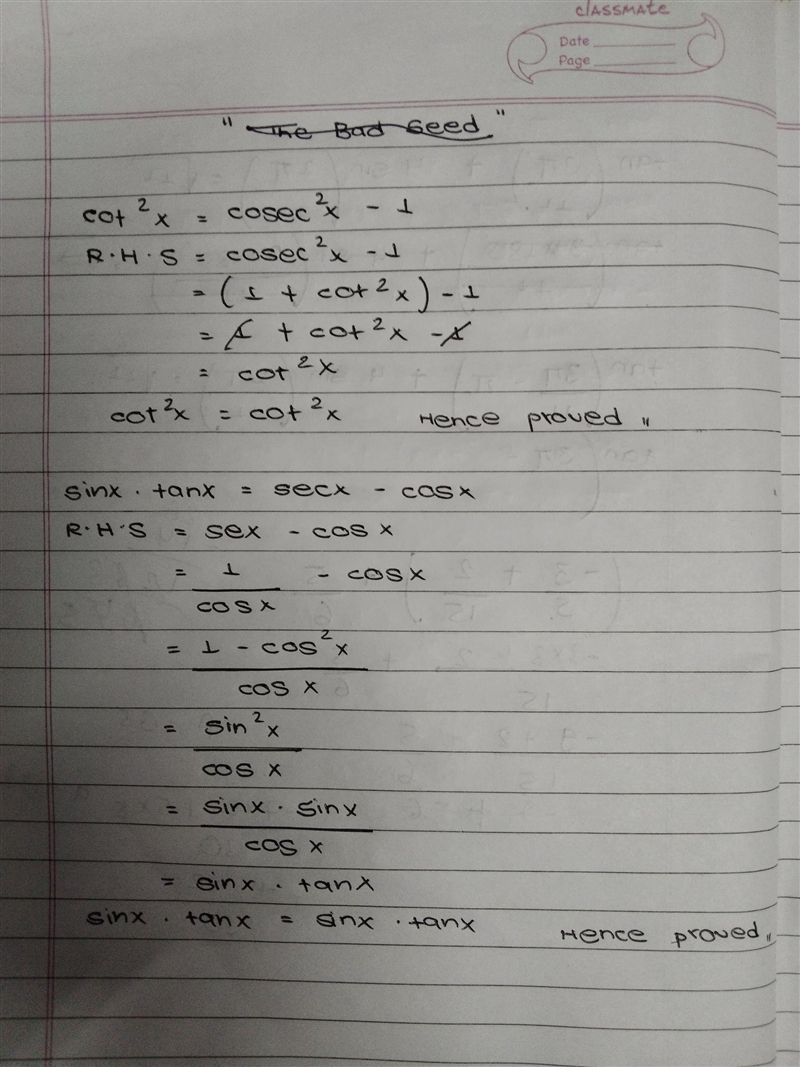 classmate
Date
Page
" The Bad Seed "
cot²x = cosec²x - 1
R.H.S = cosec²x - 1
= (1 + cot²x) - 1
= 1 + cot²x - 1
= cot²x
cot²x = cot²x Hence proved "
sinx . tanx = secx - cosx
R.H.S = sex - cosx
= 1/cosx - cosx
= 1 - cos²x / cosx
= sin²x / cosx
= sinx . sinx / cosx
= sinx . tanx
sinx . tanx = sinx . tanx Hence proved "